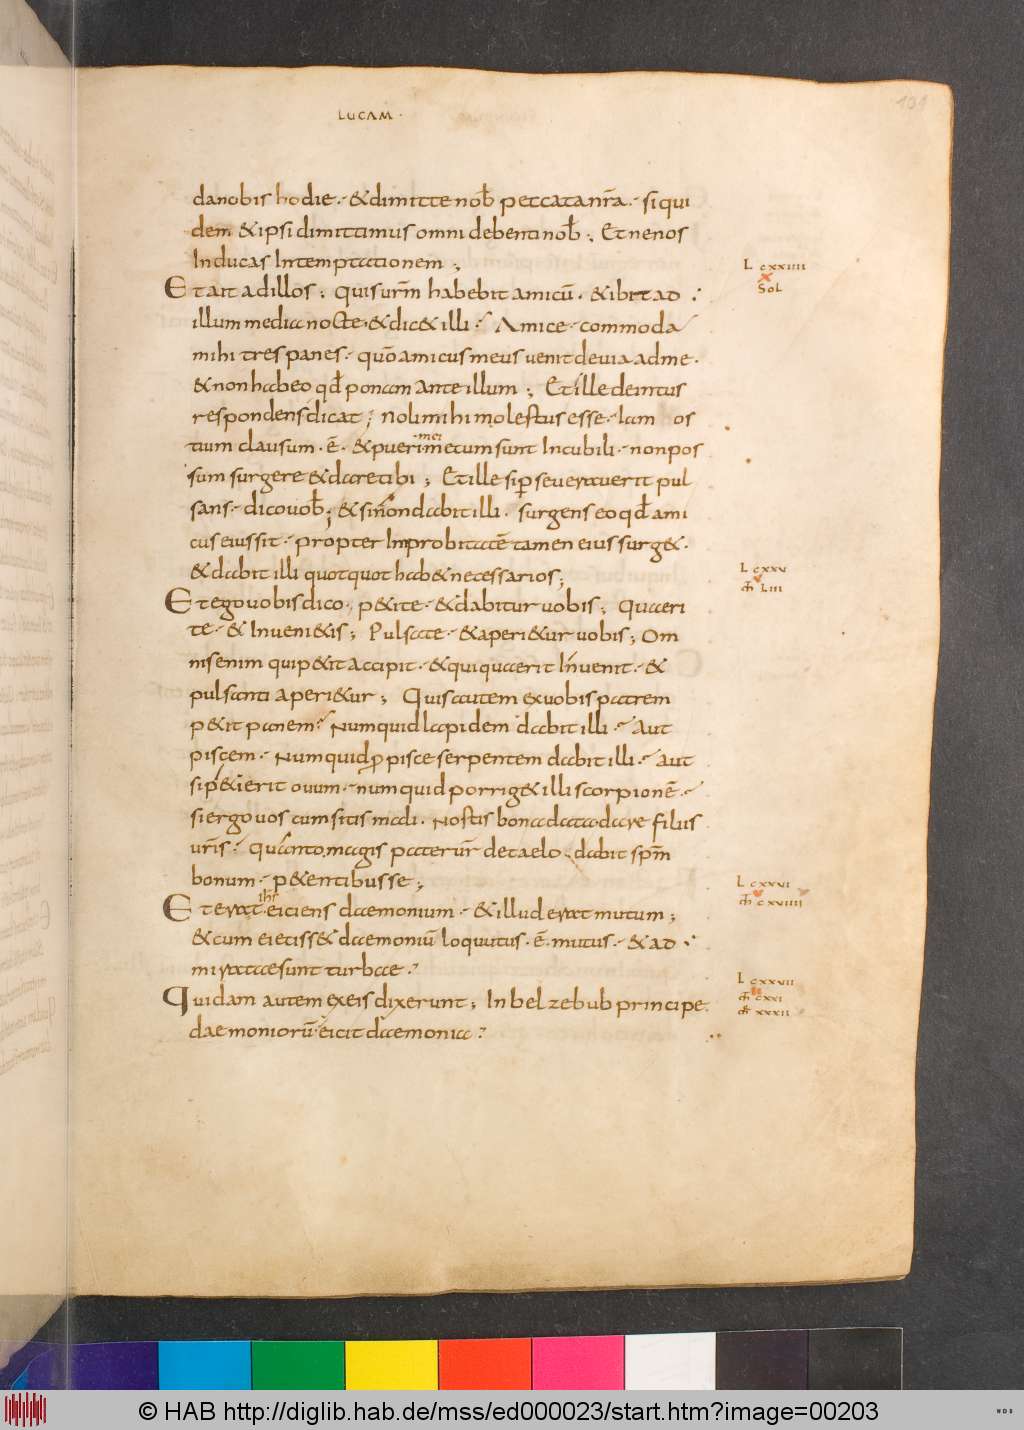 LUCAM·
101
da nobis hodie· & dimitte nob̄ peccata nr̄a· si qui
dem & ipsi dimittimus omni debenti nob̄; Et ne nos
Inducas In temptationem;
Et ait ad illos; Quis urm̄ habebit amicū· & ibit ad
illum media nocte· & dic& illi· Amice· commoda
mihi tres panes· quō amicus meus venit de via ad me·
& non habeo qd̄ ponam ante illum; Et ille deintus
respondens dicat; Noli mihi molestus esse· Iam os
tium clausum· ē· & pueri mei mecum sunt In cubili· non pos
sum surgere & dare tibi; Et ille si perseveraverit pul
sans· dico vob̄; & si non dabit illi· surgens eo qd̄ ami
cus eius sit· propter Improbitatē tamen eius surg&·
& dabit illi quotquot hab& necessarios;
Et ego vobis dico· p&ite· & dabitur vobis; Quaeri
te· & Inveni&is; Pulsate· & aperi&ur vobis; Om
nis enim qui p&it accipit· & qui quaerit Invenit· &
pulsanti aperi&ur; Quis autem ex vobis patrem
p&it panem· Numquid lapidem dabit illi· Aut
piscem· Numquid ꝓ pisce serpentem dabit illi· Aut
si p&ierit ovum· numquid porrig& illi scorpionē·
si ergo vos cum sitis mali· Nostis bona data dare filiis
vr̄is· Quanto magis pater vr̄ de caelo· dabit spm̄
bonum· p&entibus se;
Et erat ihs· eiciens daemonium· & illud erat mutum;
& cum eiciss& daemoniū loquutus· ē· mutus· & ad
miratae sunt turbae·
Quidam autem ex eis dixerunt; In belzebub principe
daemoniorū· eicit daemonia·
L cxxiiii
Sol
L cxxv
m̄ Liii
L cxxvi
m̄ cxviiii
L cxxvii
m̄ cxxi
mr̄ xxxii
© HAB http://diglib.hab.de/mss/ed000023/start.htm?image=00203
WDB